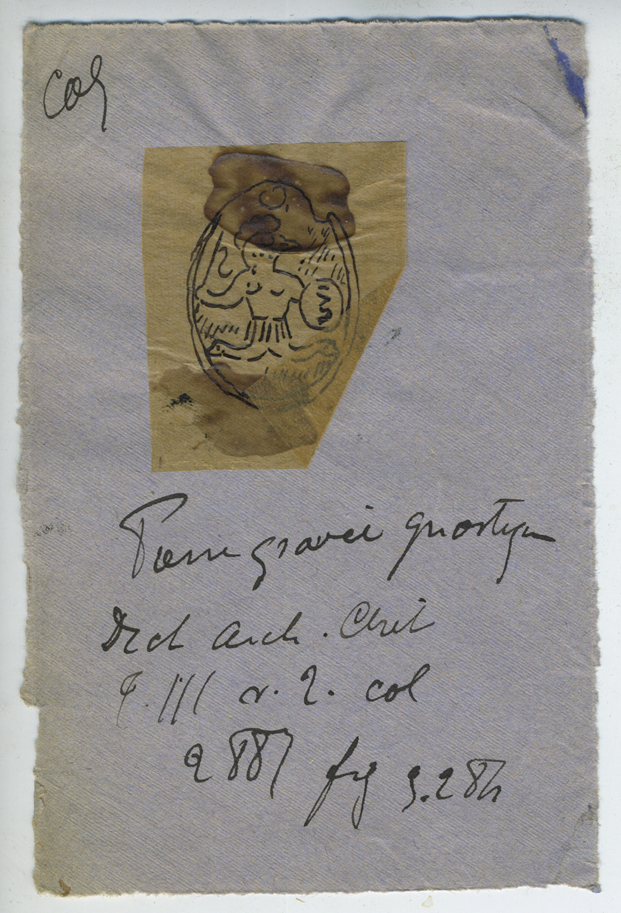 Coq
Pierre gravée gnostique
Dict Arch. Chrét
t. III v. 2. col
2887 fig 3.284